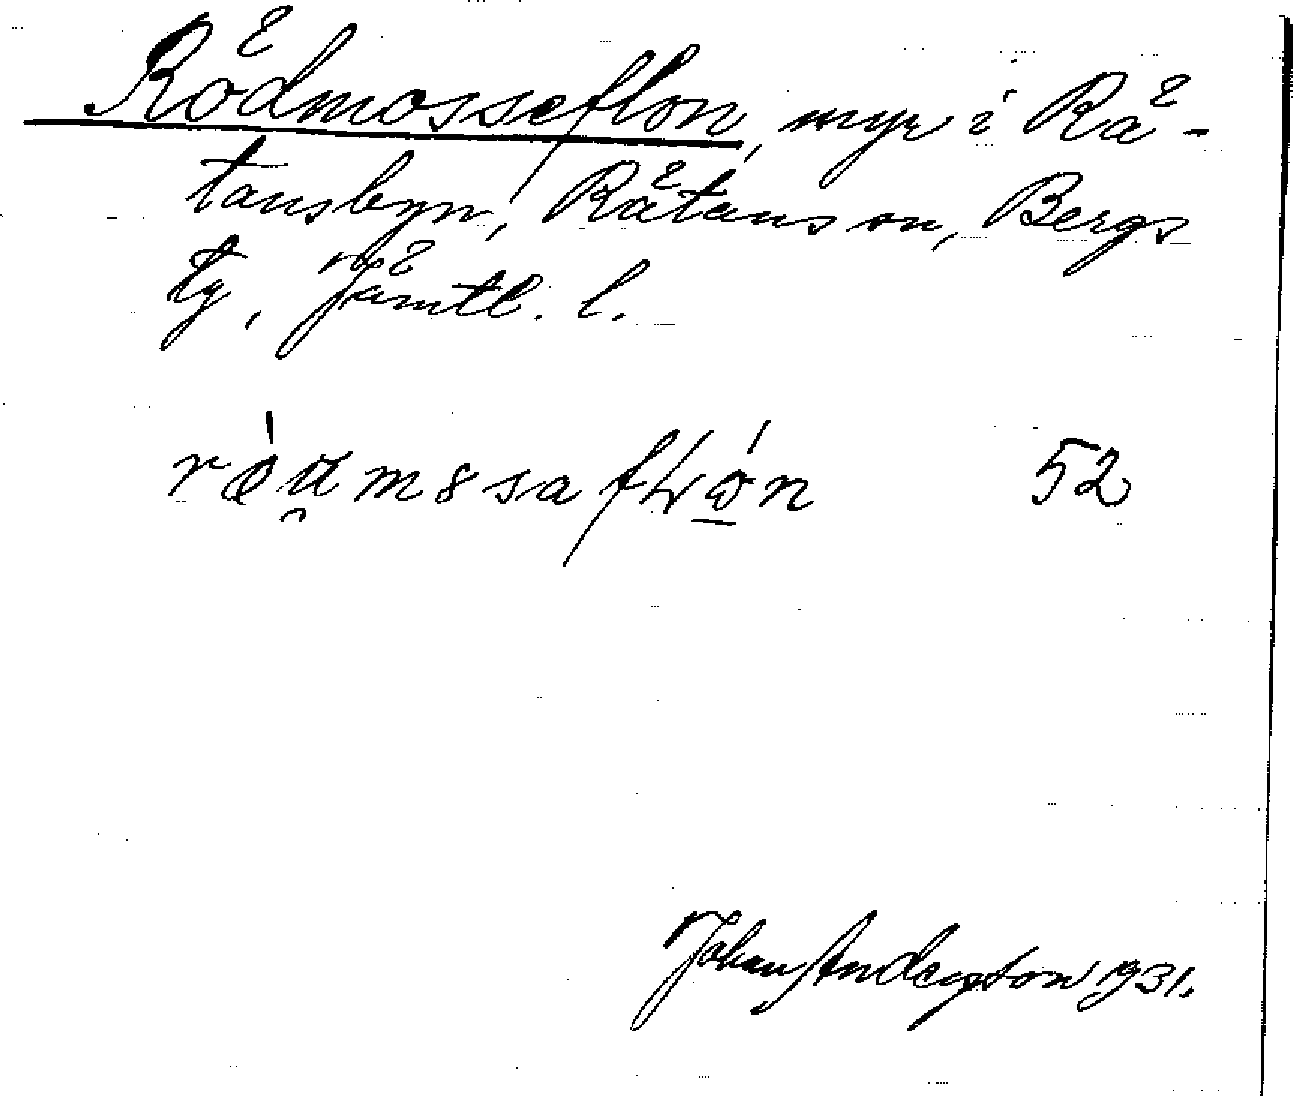 Rödmosseflon, myr i Rä-
tansbyn, Rätans sn, Bergs
tg, Jämtl. l.
52
Johan Anderzton 1931.